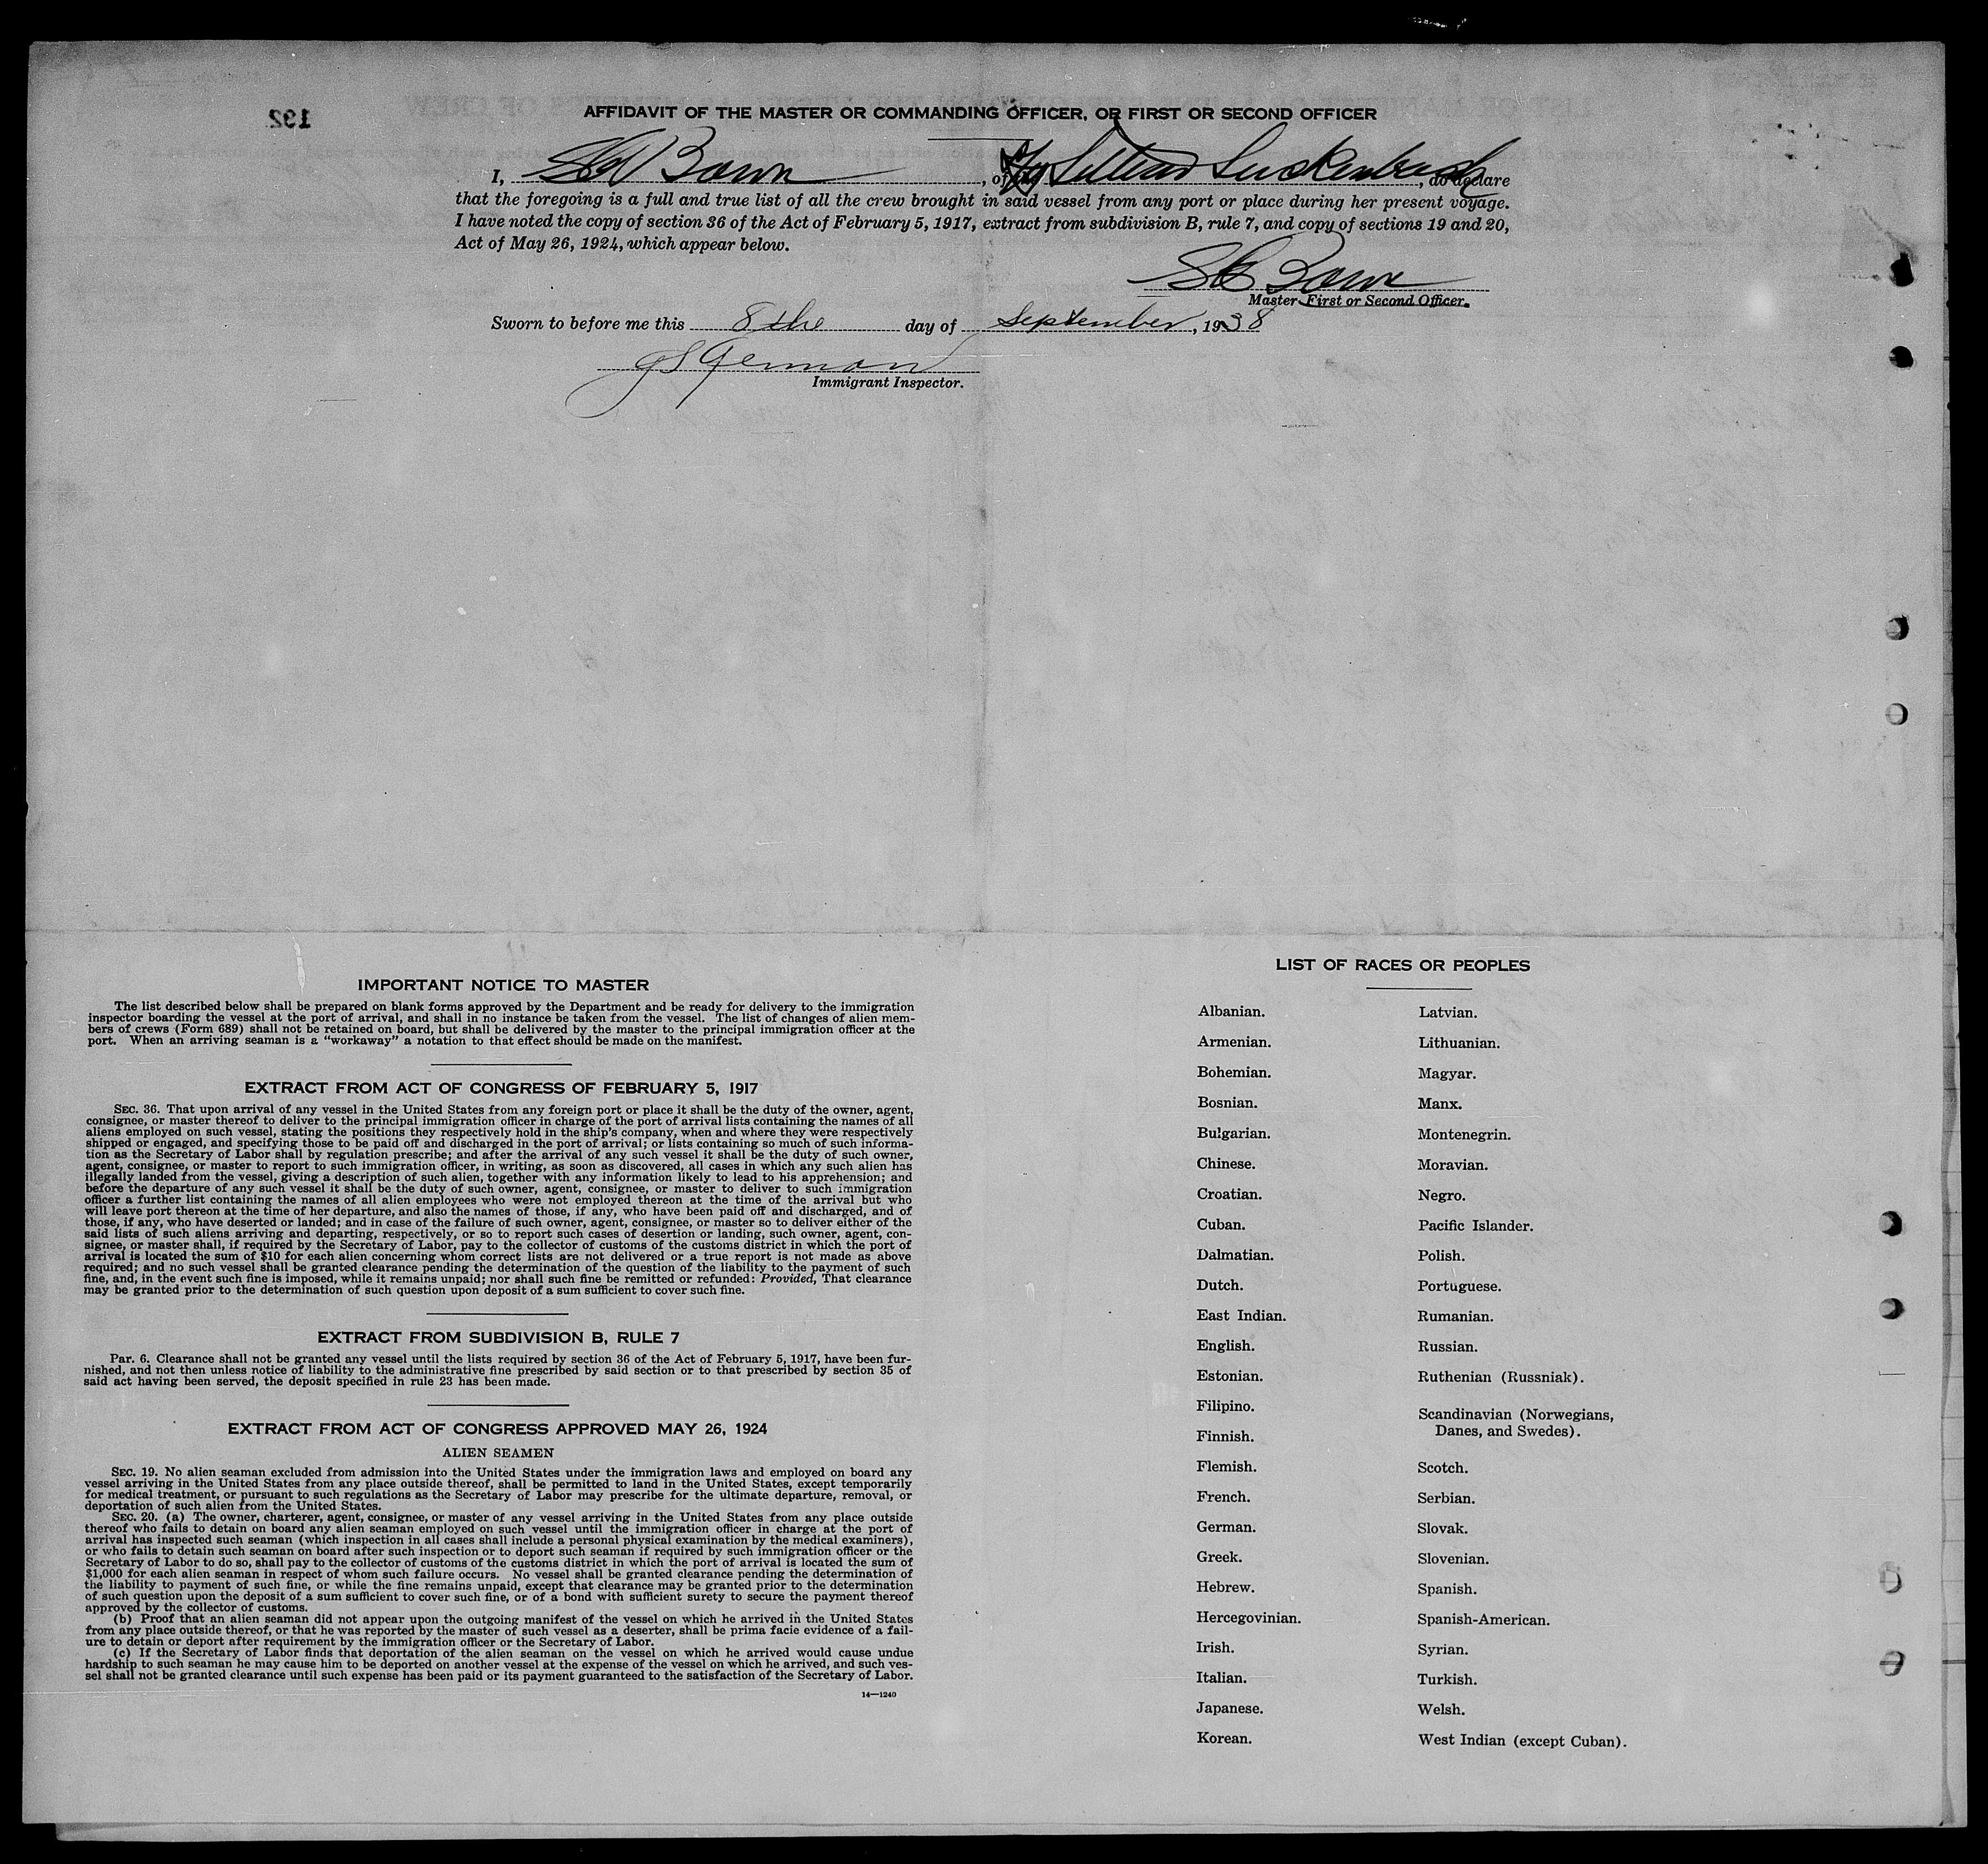 192
AFFIDAVIT OF THE MASTER OR COMMANDING OFFICER, OR FIRST OR SECOND OFFICER
I, Bown, of Lillian Luckenbach, do declare
that the foregoing is a full and true list of all the crew brought in said vessel from any port or place during her present voyage.
I have noted the copy of section 36 of the Act of February 5, 1917, extract from subdivision B, rule 7, and copy of sections 19 and 20,
Act of May 26, 1924, which appear below.
Bown
Master, First or Second Officer.
Sworn to before me this 8 the day of September, 1938
German
Immigrant Inspector.
IMPORTANT NOTICE TO MASTER
The list described below shall be prepared on blank forms approved by the Department and be ready for delivery to the immigration
inspector boarding the vessel at the port of arrival, and shall in no instance be taken from the vessel. The list of changes of alien mem-
bers of crews (Form 689) shall not be retained on board, but shall be delivered by the master to the principal immigration officer at the
port. When an arriving seaman is a "workaway" a notation to that effect should be made on the manifest.
EXTRACT FROM ACT OF CONGRESS OF FEBRUARY 5, 1917
SEC. 36. That upon arrival of any vessel in the United States from any foreign port or place it shall be the duty of the owner, agent,
consignee, or master thereof to deliver to the principal immigration officer in charge of the port of arrival lists containing the names of all
aliens employed on such vessel, stating the positions they respectively hold in the ship's company, when and where they were respectively
shipped or engaged, and specifying those to be paid off and discharged in the port of arrival; or lists containing so much of such informa-
tion as the Secretary of Labor shall by regulation prescribe; and after the arrival of any such vessel it shall be the duty of such owner,
agent, consignee, or master to report to such immigration officer, in writing, as soon as discovered, all cases in which any such alien has
illegally landed from the vessel, giving a description of such alien, together with any information likely to lead to his apprehension; and
before the departure of any such vessel it shall be the duty of such owner, agent, consignee, or master to deliver to such immigration
officer a further list containing the names of all alien employees who were not employed thereon at the time of the arrival but who
will leave port thereon at the time of her departure, and also the names of those, if any, who have been paid off and discharged, and of
those, if any, who have deserted or landed; and in case of the failure of such owner, agent, consignee, or master so to deliver either of the
said lists of such aliens arriving and departing, respectively, or so to report such cases of desertion or landing, such owner, agent, con-
signee, or master shall, if required by the Secretary of Labor, pay to the collector of customs of the customs district in which the port of
arrival is located the sum of $10 for each alien concerning whom correct lists are not delivered or a true report is not made as above
required; and no such vessel shall be granted clearance pending the determination of the question of the liability to the payment of such
fine, and, in the event such fine is imposed, while it remains unpaid; nor shall such fine be remitted or refunded: Provided, That clearance
may be granted prior to the determination of such question upon deposit of a sum sufficient to cover such fine.
EXTRACT FROM SUBDIVISION B, RULE 7
Par. 6. Clearance shall not be granted any vessel until the lists required by section 36 of the Act of February 5, 1917, have been fur-
nished, and not then unless notice of liability to the administrative fine prescribed by said section or to that prescribed by section 35 of
said act having been served, the deposit specified in rule 23 has been made.
EXTRACT FROM ACT OF CONGRESS APPROVED MAY 26, 1924
ALIEN SEAMEN
SEC. 19. No alien seaman excluded from admission into the United States under the immigration laws and employed on board any
vessel arriving in the United States from any place outside thereof, shall be permitted to land in the United States, except temporarily
for medical treatment, or pursuant to such regulations as the Secretary of Labor may prescribe for the ultimate departure, removal, or
deportation of such alien from the United States.
SEC. 20. (a) The owner, charterer, agent, consignee, or master of any vessel arriving in the United States from any place outside
thereof who fails to detain on board any alien seaman employed on such vessel until the immigration officer in charge at the port of
arrival has inspected such seaman (which inspection in all cases shall include a personal physical examination by the medical examiners),
or who fails to detain such seaman on board after such inspection or to deport such seaman if required by such immigration officer or the
Secretary of Labor to do so, shall pay to the collector of customs of the customs district in which the port of arrival is located the sum of
$1,000 for each alien seaman in respect of whom such failure occurs. No vessel shall be granted clearance pending the determination of
the liability to payment of such fine, or while the fine remains unpaid, except that clearance may be granted prior to the determination
of such question upon the deposit of a sum sufficient to cover such fine, or of a bond with sufficient surety to secure the payment thereof
approved by the collector of customs.
(b) Proof that an alien seaman did not appear upon the outgoing manifest of the vessel on which he arrived in the United States
from any place outside thereof, or that he was reported by the master of such vessel as a deserter, shall be prima facie evidence of a fail-
ure to detain or deport after requirement by the immigration officer or the Secretary of Labor.
(c) If the Secretary of Labor finds that deportation of the alien seaman on the vessel on which he arrived would cause undue
hardship to such seaman he may cause him to be deported on another vessel at the expense of the vessel on which he arrived, and such ves-
sel shall not be granted clearance until such expense has been paid or its payment guaranteed to the satisfaction of the Secretary of Labor.
14—1240
LIST OF RACES OR PEOPLES
Albanian.
Armenian.
Bohemian.
Bosnian.
Bulgarian.
Chinese.
Croatian.
Cuban.
Dalmatian.
Dutch.
East Indian.
English.
Estonian.
Filipino.
Finnish.
Flemish.
French.
German.
Greek.
Hebrew.
Hercegovinian.
Irish.
Italian.
Japanese.
Korean.
Latvian.
Lithuanian.
Magyar.
Manx.
Montenegrin.
Moravian.
Negro.
Pacific Islander.
Polish.
Portuguese.
Rumanian.
Russian.
Ruthenian (Russniak).
Scandinavian (Norwegians,
Danes, and Swedes).
Scotch.
Serbian.
Slovak.
Slovenian.
Spanish.
Spanish-American.
Syrian.
Turkish.
Welsh.
West Indian (except Cuban).